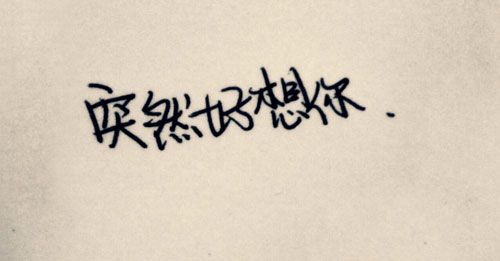 突然好想你.